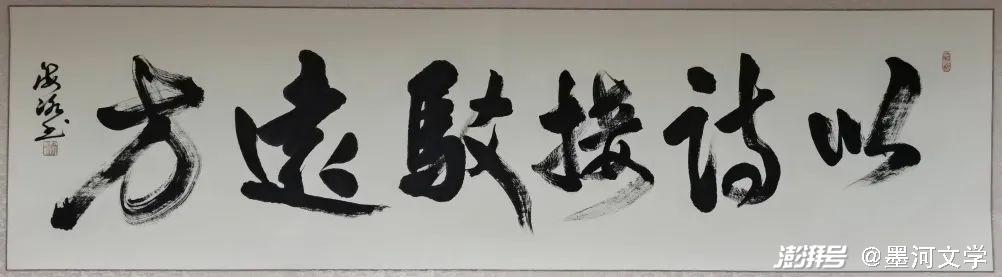 以诗接馱遠方
澎湃号 @墨河文学